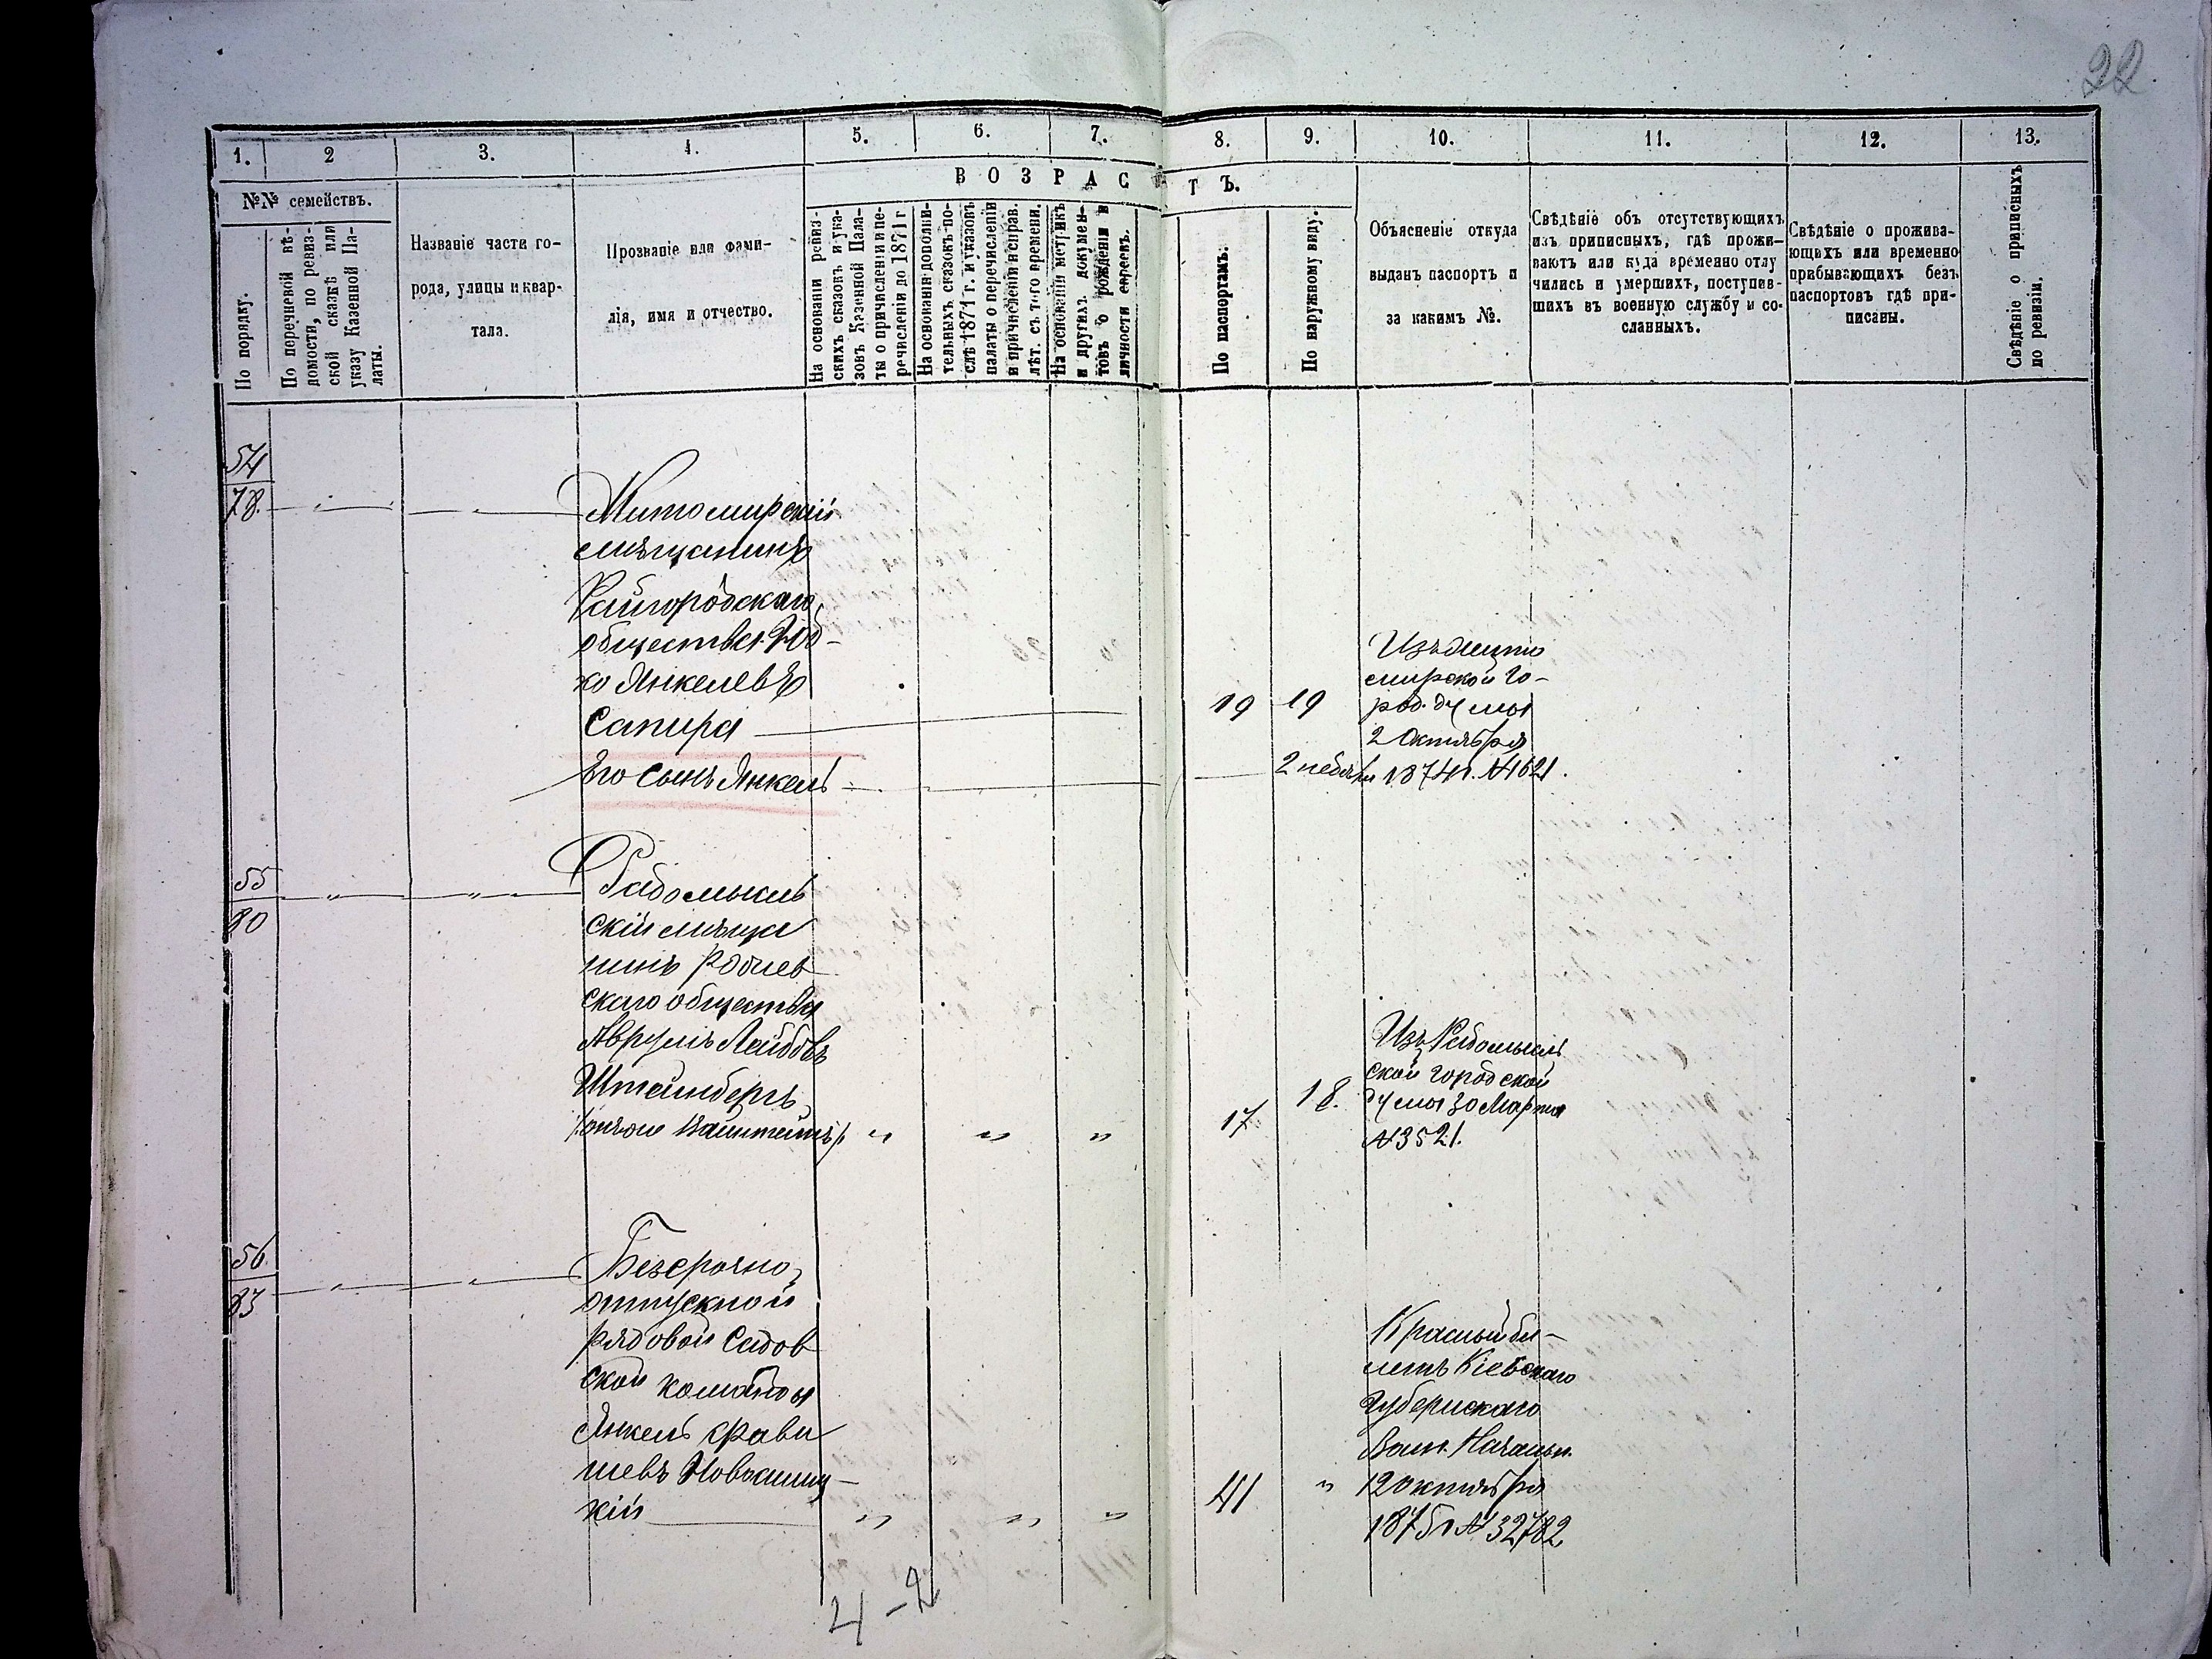 22
1. 2 3. 4. 5. 6. 7. 8. 9. 10. 11. 12. 13.
№№ семействъ.
ВОЗРАСТЪ.
По порядку.
По перечневой вѣ-
домости, по ревиз-
ской сказкѣ или
указу Казенной Па-
латы.
Названіе части го-
рода, улицы и квар-
тала.
Прозваніе или фами-
лія, имя и отчество.
На основаніи ревиз-
скихъ сказокъ и ука-
зовъ Казенной Пала-
ты о причисленіи и пе-
речисленіи до 1871 г
На основаніи дополни-
тельныхъ сказокъ по-
слѣ 1871 г. и указовъ
палаты о перечисленіи
и причисленіи и справ.
лѣт. съ того времени.
На основаніи метрикъ
и другихъ докумен-
товъ о рожденіи и
личности евреевъ.
По паспортамъ.
По наружному виду.
Объясненіе откуда
выданъ паспортъ и
за какимъ №.
Свѣдѣніе объ отсутствующихъ
изъ приписныхъ, гдѣ прожи-
ваютъ или куда временно отлу
чились и умершихъ, поступив-
шихъ въ военную службу и со-
сланныхъ.
Свѣдѣніе о прожива-
ющихъ или временно
прибывающихъ безъ
паспортовъ гдѣ при-
писаны.
Свѣдѣніе о приписныхъ
по ревизіи.
54
78.
Житомирскій
мѣщанинъ
Райгородскаго
общества Юд-
ко Янкелевъ
Сапира
Его сынъ Янкель
19 19
2 недѣли
Изъ Жито
мирской Го-
род. думы
2 Октября
1874 г. №1621.
55
80
Радомысль
скій мѣща
нинъ
скаго общества
Аврумъ Лейбовъ
Штейнбергъ
17 18.
Изъ Радомысль
ской городской
думы 30 Марта
№3521.
56
83
Безсрочно
отпускной
рядовой Садов
ской команды
Янкель
шевъ
кій
41 "
Красный би-
летъ Кіевскаго
Губернскаго
Воин. Начальн.
12 октября
1875 г №32782
4-2